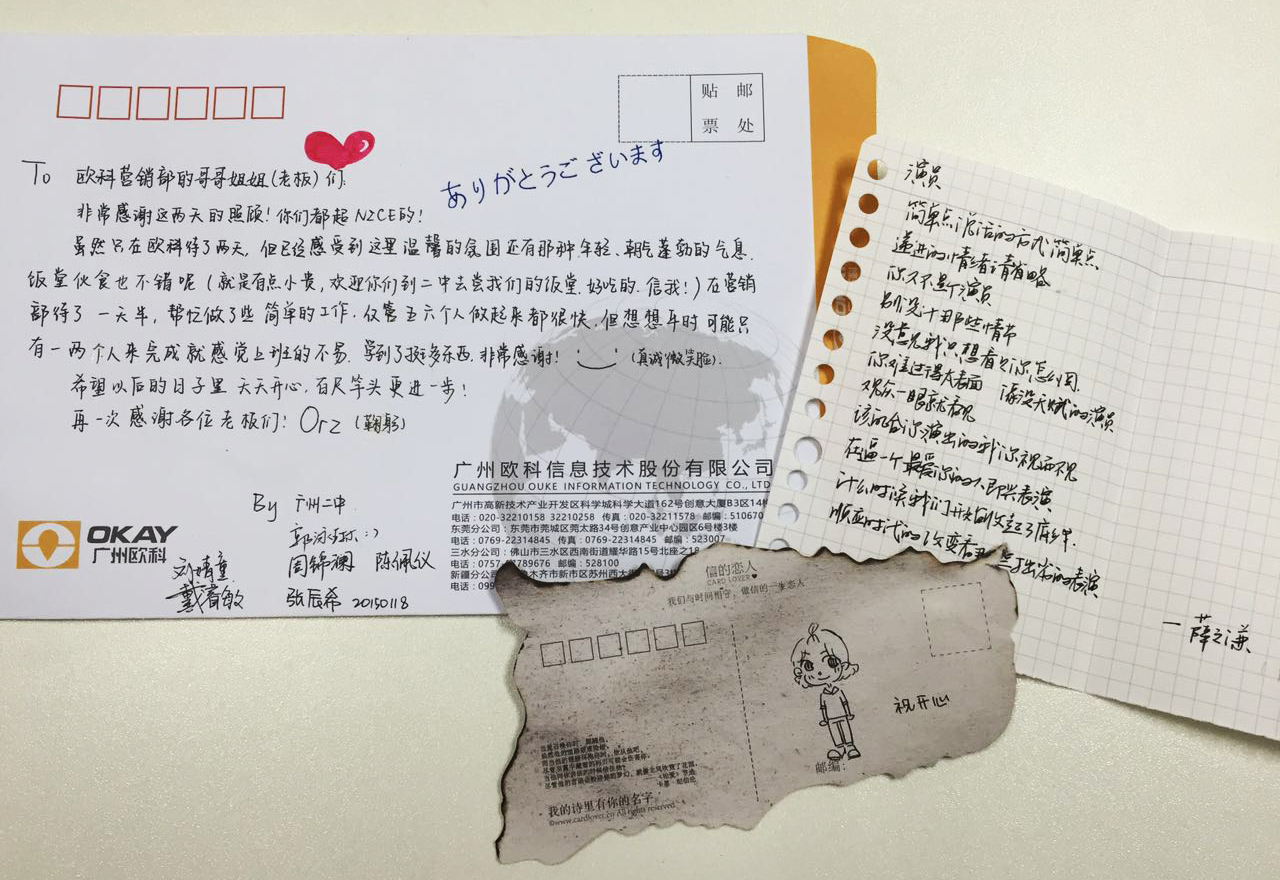 贴 邮
票 处
To 欧科营销部的哥哥姐姐(老板)们:
ありがとうございます
非常感谢这两天的照顾!你们都超NICE的!
虽然只在欧科待了两天,但已经感受到这里温馨的氛围还有那种年轻、朝气蓬勃的气息.
饭堂伙食也不错呢(就是有点小贵,欢迎你们到二中去尝我们的饭堂.好吃的.信我!)在营销
部待了一天半,帮忙做了些简单的工作.仅管五六个人做起来都很快.但想想平时可能只
有一两个人来完成就感觉上班的不易.学到了挺多东西.非常感谢! (真诚微笑脸).
希望以后的日子里 天天开心,百尺竿头更进一步!
再一次感谢各位老板们! Orz (鞠躬)
By 广州二中
周锦斓 陈佩仪
刘晴童
戴春敏 张辰希 20150118
OKAY
广州欧科
广州欧科信息技术股份有限公司
GUANGZHOU OUKE INFORMATION TECHNOLOGY CO., LTD
广州市高新技术产业开发区科学城科学大道162号创意大厦B3区14
电话:020-32210158 32210258 传真:020-32211578 邮编:510670
东莞分公司:东莞市莞城区莞太路34号创意产业中心园区6号楼3楼
电话:0769-22314845 传真:0769-22314845 邮编:523007
三水分公司:佛山市三水区西南街道耀华路15号北座之18
电话:0757- 邮编:528100
新疆分公司: 木齐市新市区苏州西
电话:099
演员
简单点说话的方式简单点
递进的情绪请省略
你又不是个演员
别设计那些情节
没意见我只想看看你怎么圆
你难过得太表面 像没天赋的演员
观众一眼就看见
该配合你演出的我尽视而不见
在逼一个最爱你的人即兴表演
什么时候我们开始收起了底线
顺应时代的改变看那些拙劣的表演
—薛之谦
信的恋人
CARD LOVER
我们与时间相守,做信的一生恋人
祝开心
邮编:
我的诗里有你的名字
©www.cardlover.cn All rights reserved